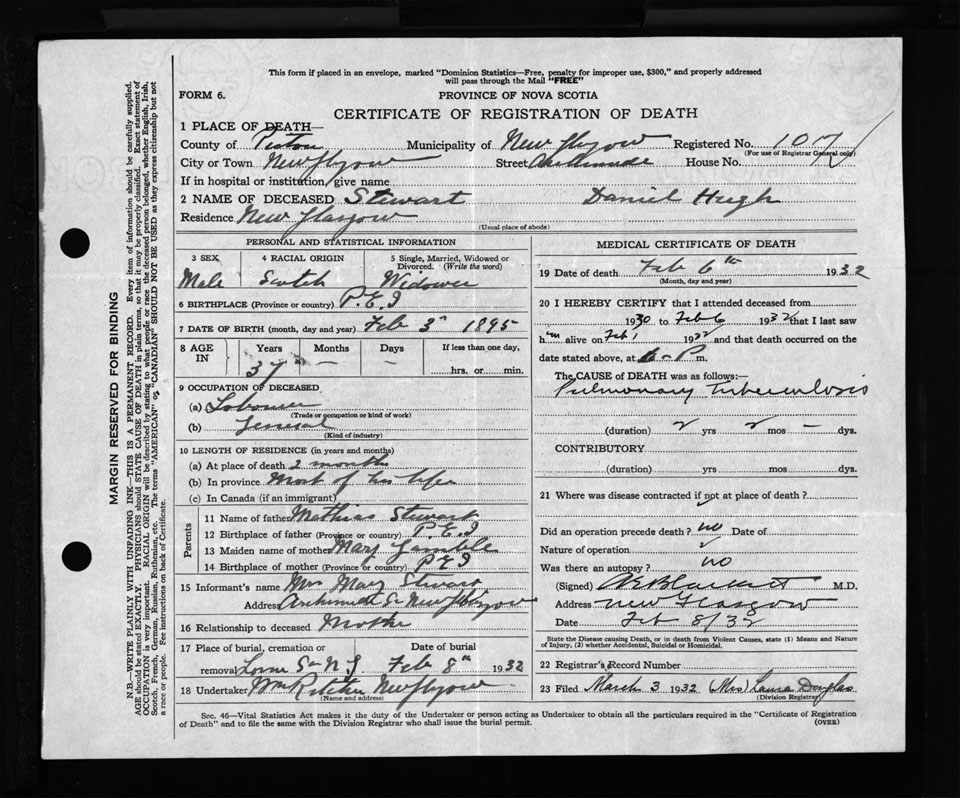 This form if placed in an envelope, marked "Dominion Statistics—Free, penalty for improper use, $300," and properly addressed
will pass through the Mail "FREE"
FORM 6.
PROVINCE OF NOVA SCOTIA
CERTIFICATE OF REGISTRATION OF DEATH
1 PLACE OF DEATH—
County of Pictou Municipality of New Glasgow Registered No. 1017
(For use of Registrar General only)
City or Town New Glasgow Street House No.
If in hospital or institution, give name
2 NAME OF DECEASED Stewart Daniel Hugh
Residence New Glasgow
(Usual place of abode)
PERSONAL AND STATISTICAL INFORMATION
3 SEX 4 RACIAL ORIGIN 5 Single, Married, Widowed or
Divorced. (Write the word)
Male Scotch Widower
6 BIRTHPLACE (Province or country) P.E.I
7 DATE OF BIRTH (month, day and year) Feb 3rd 1895
8 AGE IN Years Months Days If less than one day,
37 — hrs. or min.
9 OCCUPATION OF DECEASED
(a) Labourer
(Trade or occupation or kind of work)
(b) General
(Kind of industry)
10 LENGTH OF RESIDENCE (in years and months)
(a) At place of death 2 months
(b) In province Most of his life
(c) In Canada (if an immigrant)
Parents
11 Name of father Mathias Stewart
12 Birthplace of father (Province or country) P.E.I
13 Maiden name of mother Mary Gamble
14 Birthplace of mother (Province or country) P E I
15 Informant's name Mrs Mary Stewart
Address Archimedes St New Glasgow
16 Relationship to deceased Mother
17 Place of burial, cremation or Date of burial
removal Lorne Stn N.S. Feb 8th 1932
18 Undertaker Wm Ritchie New Glasgow
(Name and address)
MEDICAL CERTIFICATE OF DEATH
19 Date of death Feb 6th 1932
(Month, day and year)
20 I HEREBY CERTIFY that I attended deceased from
1930 to Feb 6 1932 that I last saw
h im alive on Feb 1 1932 and that death occurred on the
date stated above, at 6 - P m.
The CAUSE of DEATH was as follows:—
Pulmonary Tuberculosis
(duration) 2 yrs 2 mos — dys.
CONTRIBUTORY
(duration) yrs mos dys.
21 Where was disease contracted if not at place of death?
Did an operation precede death? no Date of
Nature of operation
Was there an autopsy? no
(Signed) M.D.
Address New Glasgow
Date Feb 8/32
State the Disease causing Death, or in death from Violent Causes, state (1) Means and Nature
of Injury, (2) whether Accidental, Suicidal or Homicidal.
22 Registrar's Record Number
23 Filed March 3 1932 (Mrs) Laura Douglas
(Division Registrar)
Sec. 46—Vital Statistics Act makes it the duty of the Undertaker or person acting as Undertaker to obtain all the particulars required in the "Certificate of Registration
of Death" and to file the same with the Division Registrar who shall issue the burial permit. (OVER)
MARGIN RESERVED FOR BINDING
N.B.—WRITE PLAINLY WITH UNFADING INK—THIS IS A PERMANENT RECORD. Every item of information should be carefully supplied.
AGE should be stated EXACTLY. PHYSICIANS should STATE CAUSE OF DEATH in plain terms, so that it may be properly classified. Exact statement of
OCCUPATION is very important. RACIAL ORIGIN will be described by stating to what people or race the deceased person belonged, whether English, Irish,
Scotch, French, German, Russian, Ruthenian, etc. The terms "AMERICAN" or "CANADIAN" SHOULD NOT BE USED as they express citizenship but not
a race or people. See instructions on back of Certificate.